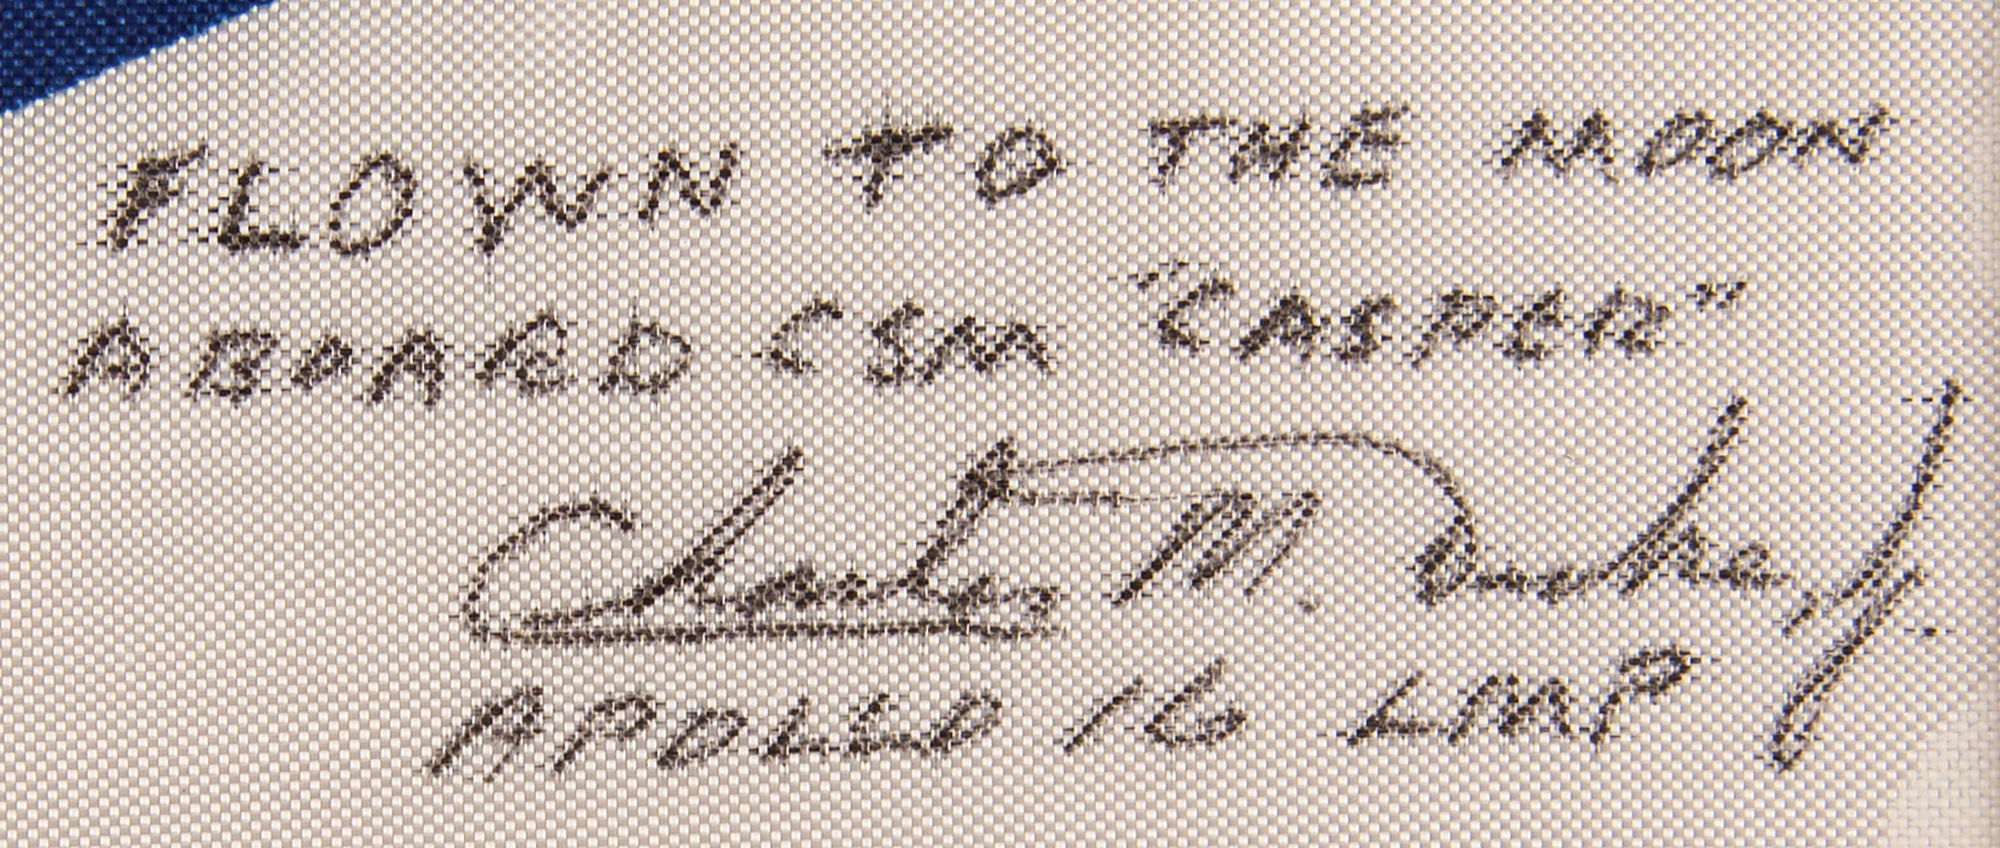 FLOWN TO THE MOON
ABOARD CSM "CASPER"
Charles M. Duke Jr.
APOLLO 16 LMP